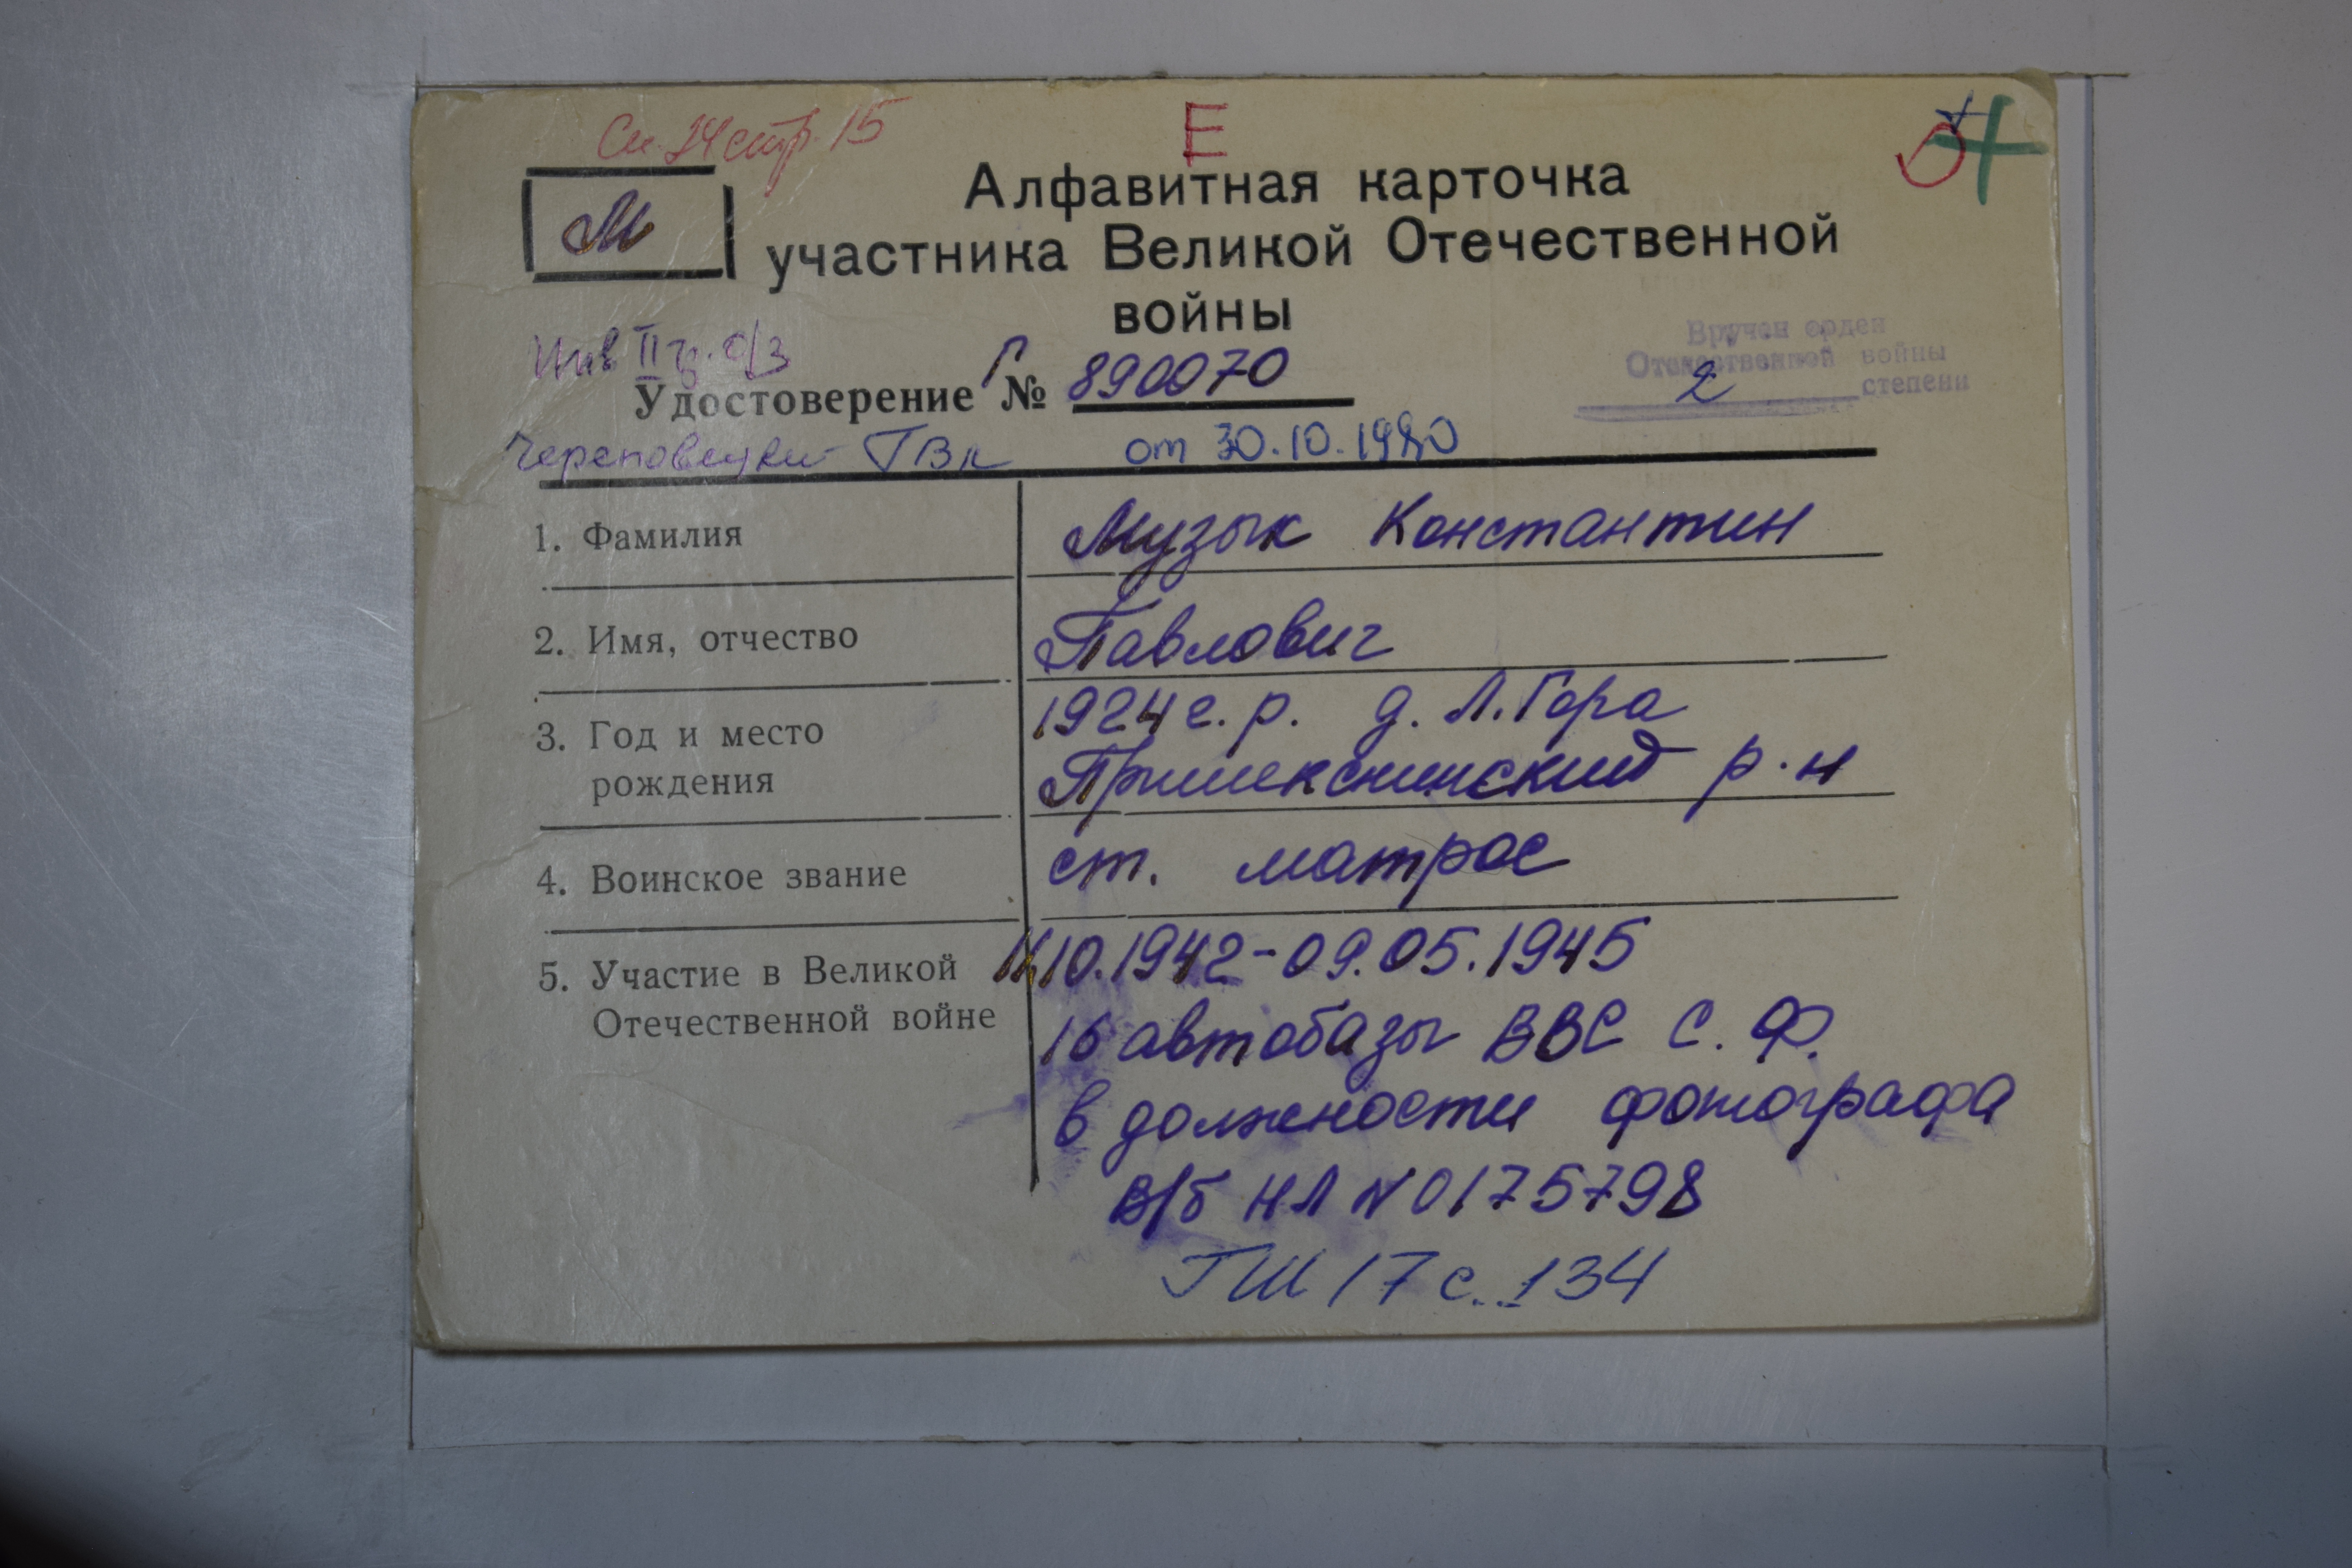 См. 24 стр. 15
Е
М
Алфавитная карточка
участника Великой Отечественной
войны
Инв II гр. о/з
Вручен орден
Отечественной войны
2 степени
Удостоверение Г № 890070
Череповецкий ГВК от 30.10.1980
1. Фамилия
Музык Константин
2. Имя, отчество
Павлович
3. Год и место
рождения
1924 г. р. д. Л. Гора
Пришекснинский р-н
4. Воинское звание
ст. матрос
5. Участие в Великой
Отечественной войне
11.10.1942-09.05.1945
16 автобазы ВВС С. Ф.
в должности фотографа
В/б НЛ N 0175798
ГШ 17 с. 134